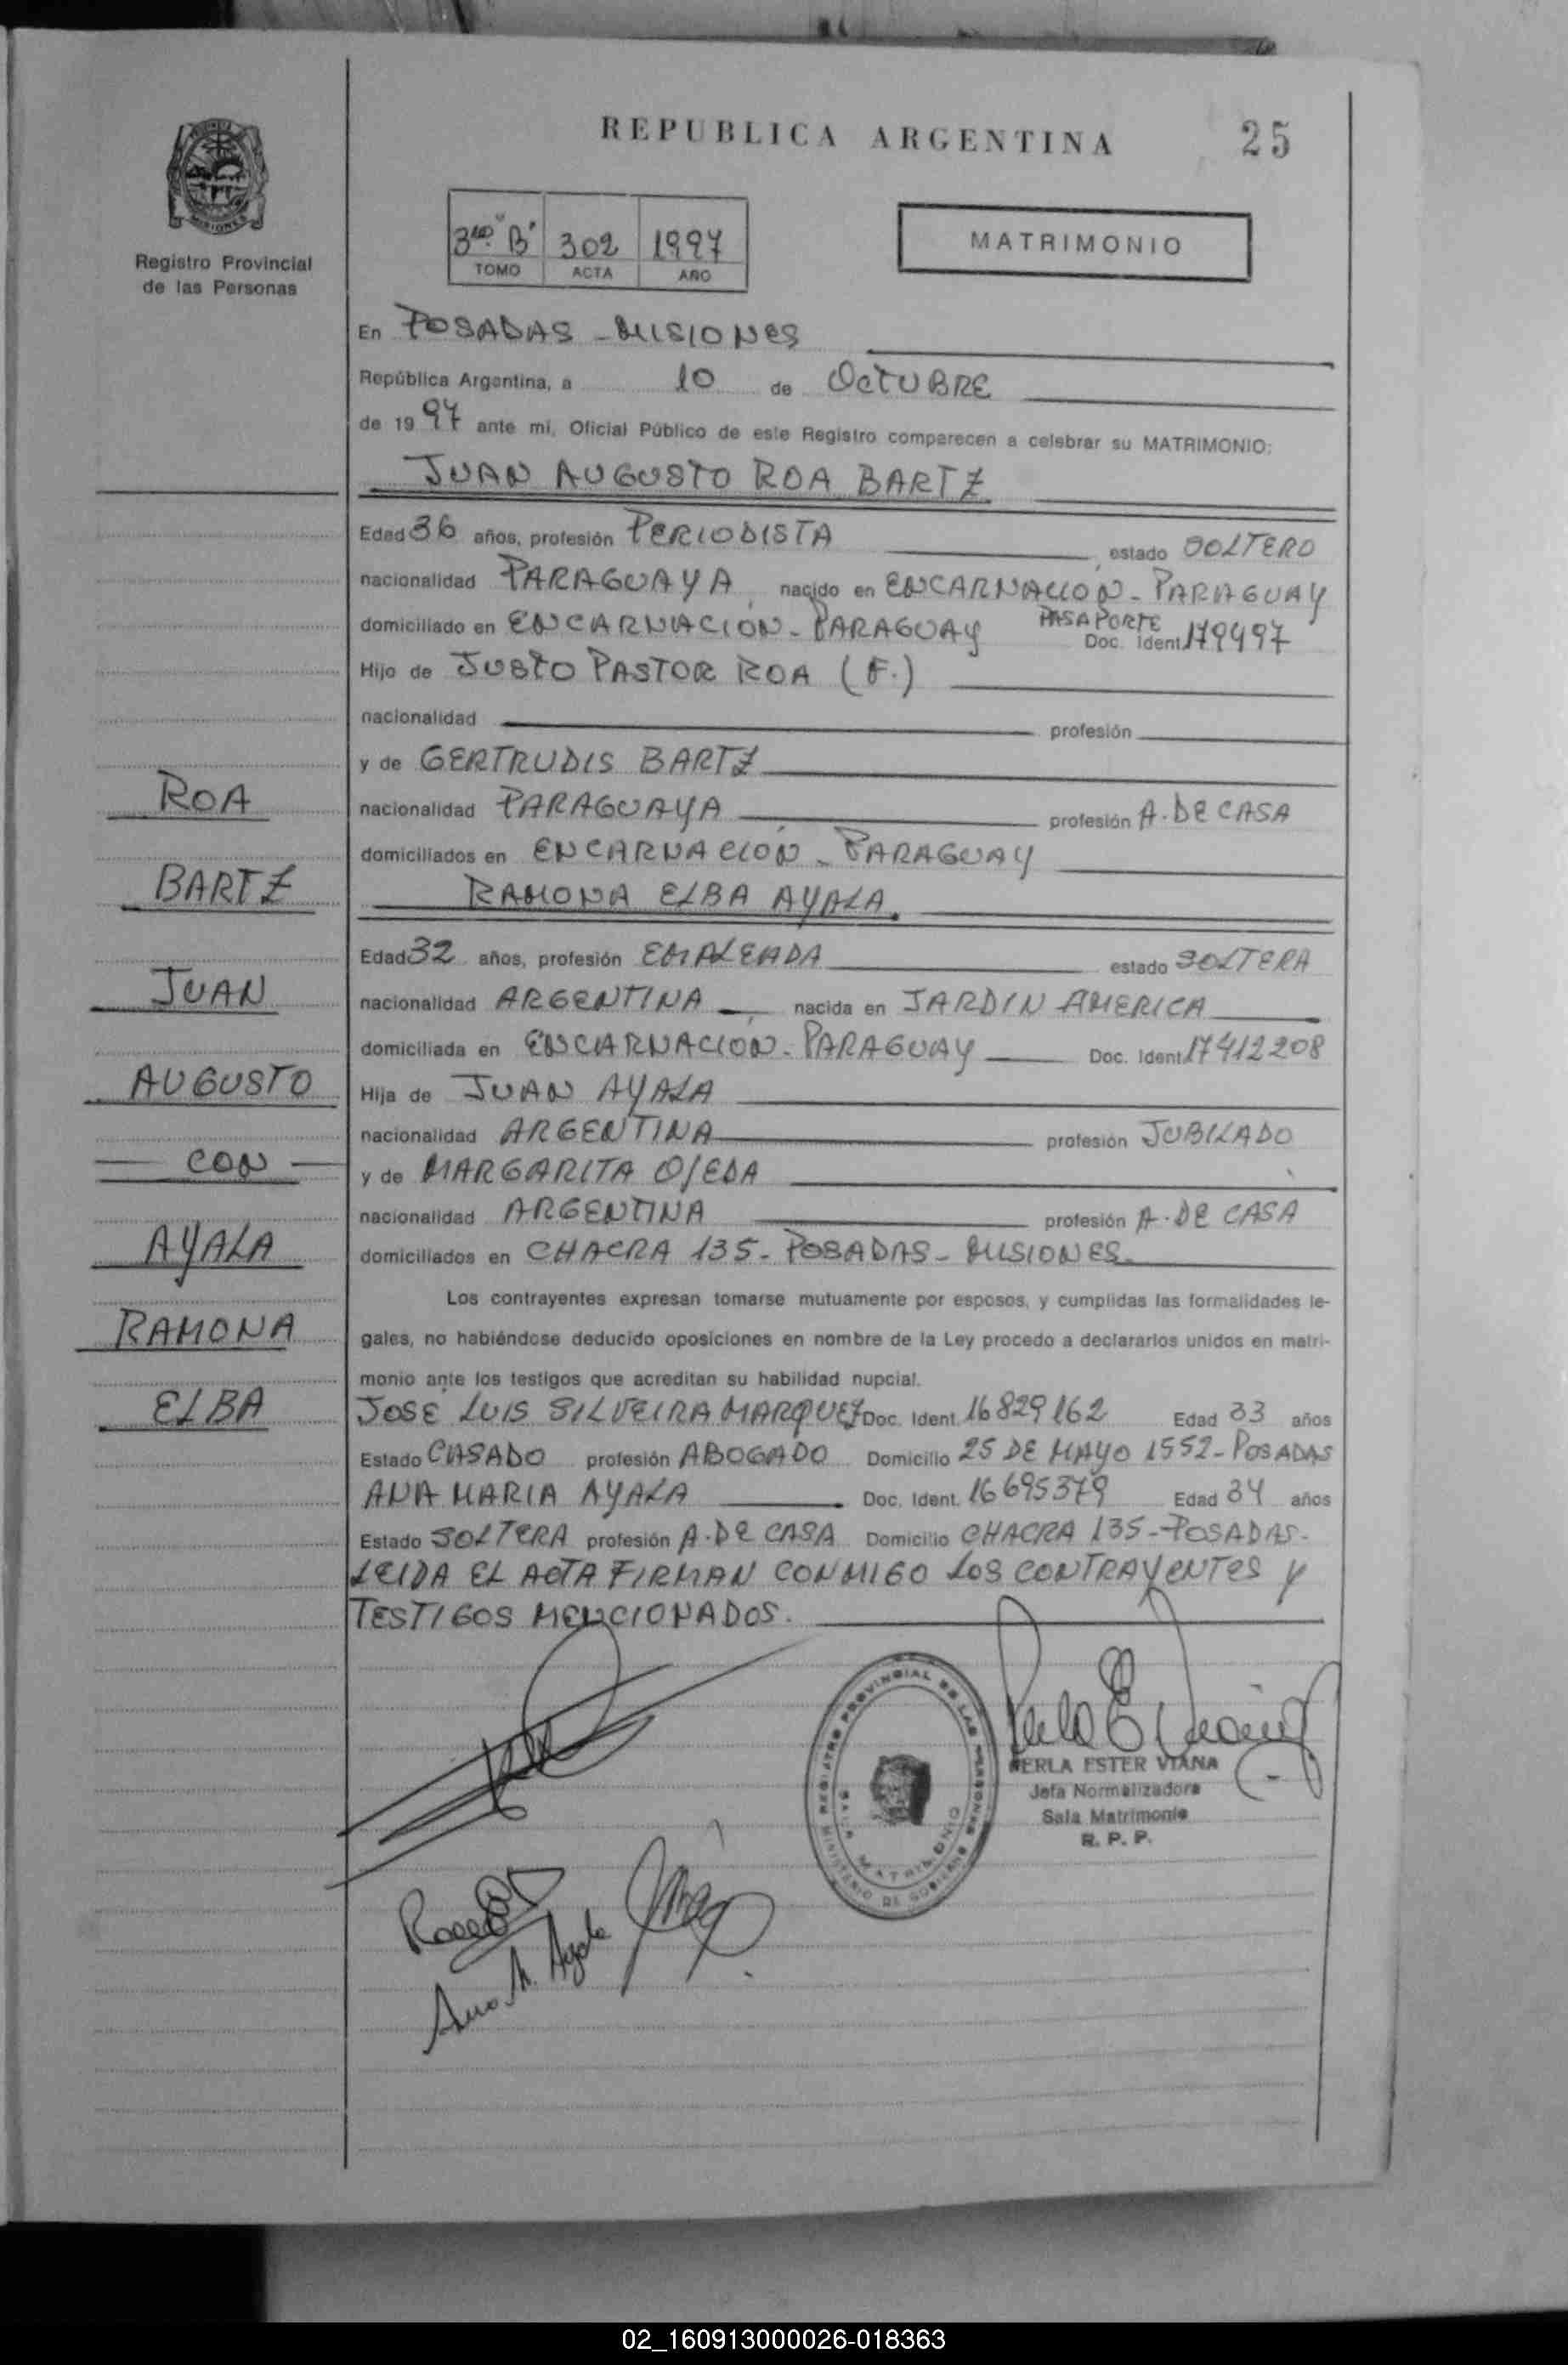 REPUBLICA ARGENTINA
25
Registro Provincial
de las Personas
3ro "B" 302 1997
TOMO ACTA AÑO
MATRIMONIO
En POSADAS - MISIONES
República Argentina, a 10 de OCTUBRE
de 1997 ante mi, Oficial Público de este Registro comparecen a celebrar su MATRIMONIO:
JUAN AUGUSTO ROA BARTZ
Edad 36 años, profesión PERIODISTA estado SOLTERO
nacionalidad PARAGUAYA, nacido en ENCARNACIÓN - PARAGUAY
domiciliado en ENCARNACIÓN - PARAGUAY PASAPORTE Doc. Ident. 179497
Hijo de JUSTO PASTOR ROA (F.)
nacionalidad profesión
y de GERTRUDIS BARTZ
nacionalidad PARAGUAYA profesión A. DE CASA
domiciliados en ENCARNACIÓN - PARAGUAY
RAMONA ELBA AYALA.
Edad 32 años, profesión EMPLEADA estado SOLTERA
nacionalidad ARGENTINA, nacida en JARDIN AMERICA
domiciliada en ENCARNACIÓN - PARAGUAY Doc. Ident. 17412208
Hija de JUAN AYALA
nacionalidad ARGENTINA profesión JUBILADO
y de MARGARITA OJEDA
nacionalidad ARGENTINA profesión A. DE CASA
domiciliados en CHACRA 135 - POSADAS - MISIONES
Los contrayentes expresan tomarse mutuamente por esposos, y cumplidas las formalidades le-
gales, no habiéndose deducido oposiciones en nombre de la Ley procedo a declararlos unidos en matri-
monio ante los testigos que acreditan su habilidad nupcial.
JOSÉ LUIS SILVEIRA MARQUEZ Doc. Ident. 16829162 Edad 33 años
Estado CASADO profesión ABOGADO Domicilio 25 DE MAYO 1552 - POSADAS
ANA MARIA AYALA Doc. Ident. 16695379 Edad 34 años
Estado SOLTERA profesión A. DE CASA Domicilio CHACRA 135 - POSADAS -
LEIDA EL ACTA FIRMAN CONMIGO LOS CONTRAYENTES Y
TESTIGOS MENCIONADOS.
ROA
BARTZ
JUAN
AUGUSTO
CON
AYALA
RAMONA
ELBA
REGISTRO PROVINCIAL DE LAS PERSONAS
MINISTERIO DE GOBIERNO
SALA MATRIMONIO
PERLA ESTER VIANA
Jefa Normalizadora
Sala Matrimonio
R. P. P.
Ana M. Ayala
02_160913000026-018363